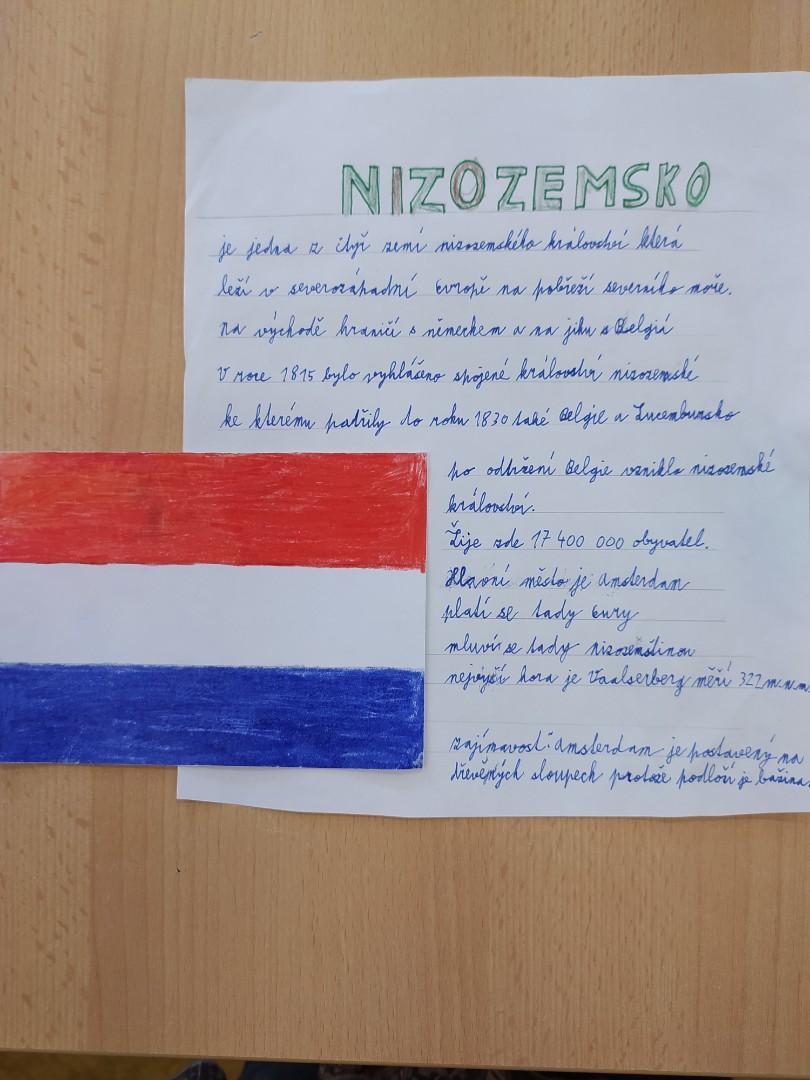 NIZOZEMSKO
je jedna z čtyř zemí nizozemského království která
leží v severozápadní Evropě na pobřeží severního moře.
na východě hraničí s německem a na jihu s Belgií
V roce 1815 bylo vyhlášeno spojené království nizozemské
ke kterému patřily do roku 1830 také Belgie a Lucembursko
po odtržení Belgie vzniklo nizozemské
království.
Žije zde 17 400 000 obyvatel.
Hlavní město je Amsterdam
platí se tady Eury
mluví se tady nizozemštinou
nejvyšší hora je Vaalserberg měří 322 m.n.m.
zajímavost: Amsterdam je postavený na
dřevěných sloupech protože podloží je bažina.